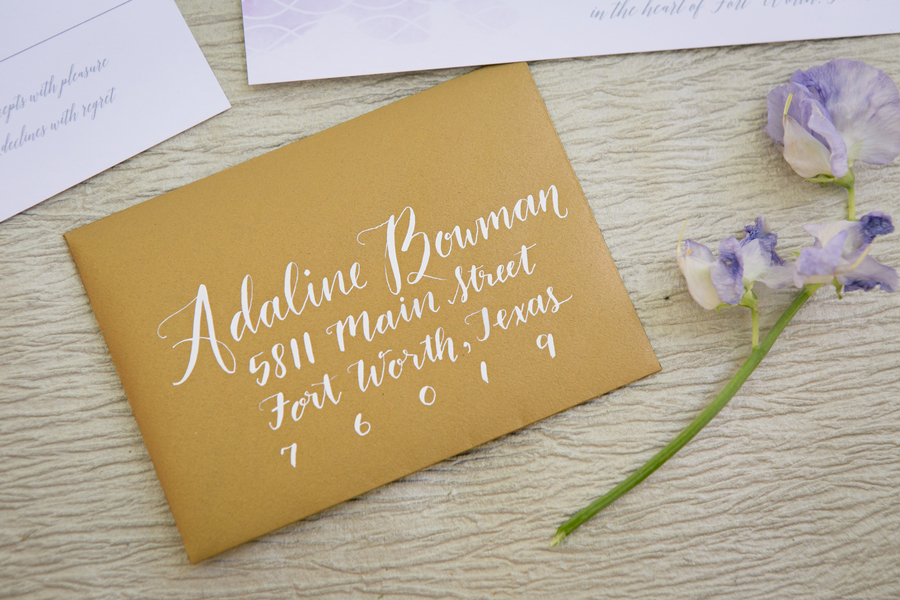 in the heart of Fort Worth,
accepts with pleasure
declines with regret
Adaline Bowman
5811 Main Street
Fort Worth, Texas
7 6 0 1 9